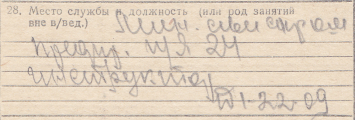 28. Место службы и должность (или род занятий
вне в/вед.) Мин. авиапром
предпр. п/я 24
инструктор
Д1-22-09